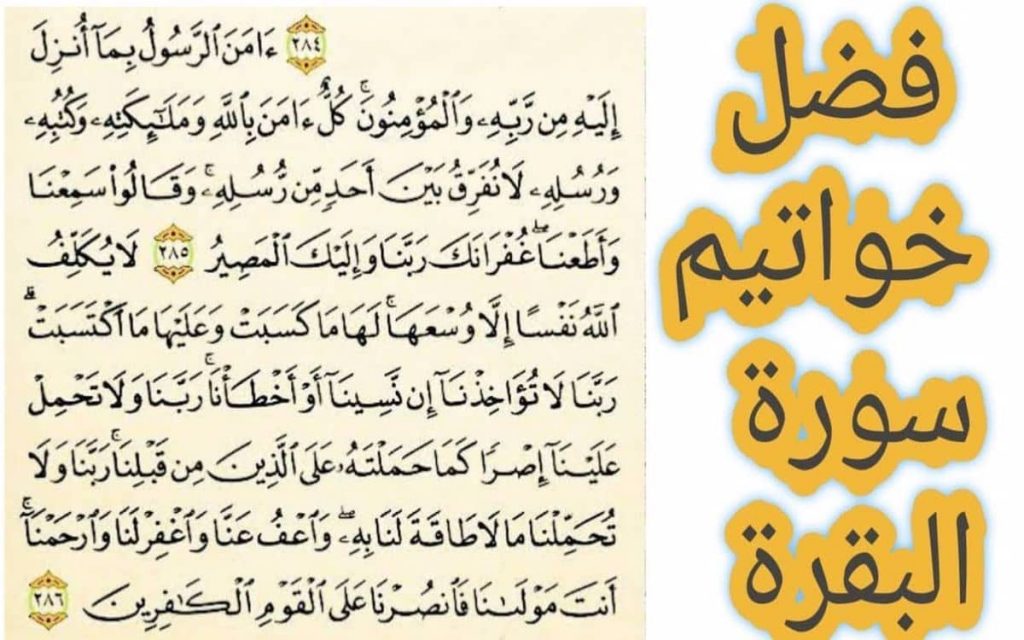 ﴿٢٨٤﴾ ءَامَنَ ٱلرَّسُولُ بِمَآ أُنزِلَ
إِلَيْهِ مِن رَّبِّهِۦ وَٱلْمُؤْمِنُونَۚ كُلٌّ ءَامَنَ بِٱللَّهِ وَمَلَٰٓئِكَتِهِۦ وَكُتُبِهِۦ
وَرُسُلِهِۦ لَا نُفَرِّقُ بَيْنَ أَحَدٍ مِّن رُّسُلِهِۦۚ وَقَالُوا۟ سَمِعْنَا
وَأَطَعْنَاۖ غُفْرَانَكَ رَبَّنَا وَإِلَيْكَ ٱلْمَصِيرُ ﴿٢٨٥﴾ لَا يُكَلِّفُ
ٱللَّهُ نَفْسًا إِلَّا وُسْعَهَاۚ لَهَا مَا كَسَبَتْ وَعَلَيْهَا مَا ٱكْتَسَبَتْۗ
رَبَّنَا لَا تُؤَاخِذْنَآ إِن نَّسِينَآ أَوْ أَخْطَأْنَاۚ رَبَّنَا وَلَا تَحْمِلْ
عَلَيْنَآ إِصْرًا كَمَا حَمَلْتَهُۥ عَلَى ٱلَّذِينَ مِن قَبْلِنَاۚ رَبَّنَا وَلَا
تُحَمِّلْنَا مَا لَا طَاقَةَ لَنَا بِهِۦۖ وَٱعْفُ عَنَّا وَٱغْفِرْ لَنَا وَٱرْحَمْنَآۚ
أَنتَ مَوْلَىٰنَا فَٱنصُرْنَا عَلَى ٱلْقَوْمِ ٱلْكَٰفِرِينَ ﴿٢٨٦﴾
فضل
خواتيم
سورة
البقرة